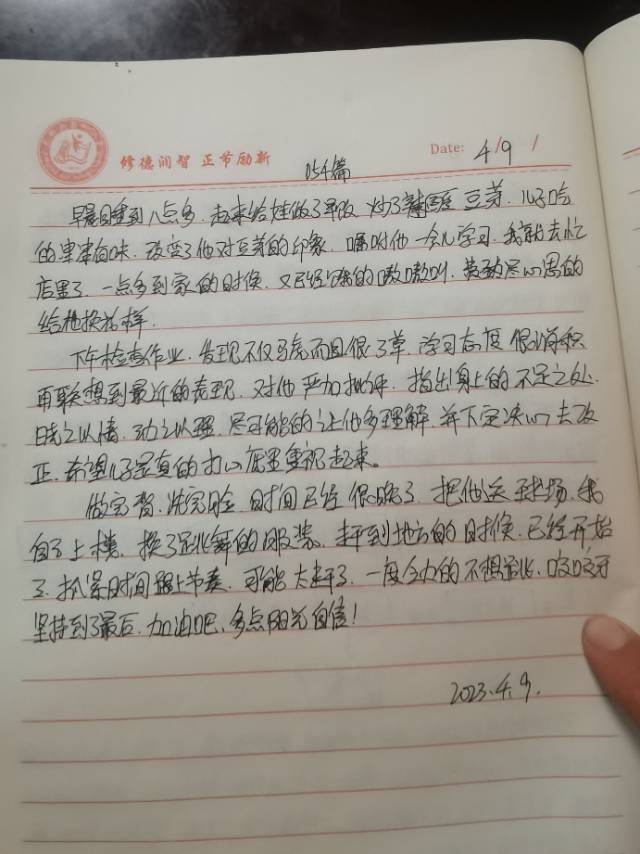 修德润智 正节励新
Date: 4/9/
054篇
早晨睡到八点多.起来给娃做了早饭 炒了豆芽.儿子吃
的津津有味.改变了他对豆芽的印象.嘱咐他一会儿学习.我就去忙
店里了.一点多到家的时候.又已经饿的嗷嗷叫.我尽心思的
给他换花样.
下午检查作业.发现不仅马虎而且很了草.学习态度很消积
再联想到最近的表现.对他严加批评.指出身上的不足之处.
晓之以情.动之以理.尽可能的让他多理解.并下定决心去改
正.希望儿子是真的打心底里重视起来。
做完 洗完脸.时间已经很晚了.把他送到球场.我
自己上楼.换了跳舞的服装.赶到地方的时候.已经开始
了.抓紧时间跟上节奏.可能太赶了.一度全力的不想.咬咬牙
坚持到了最后.加油吧.多点阳光自信!
2023.4.9.